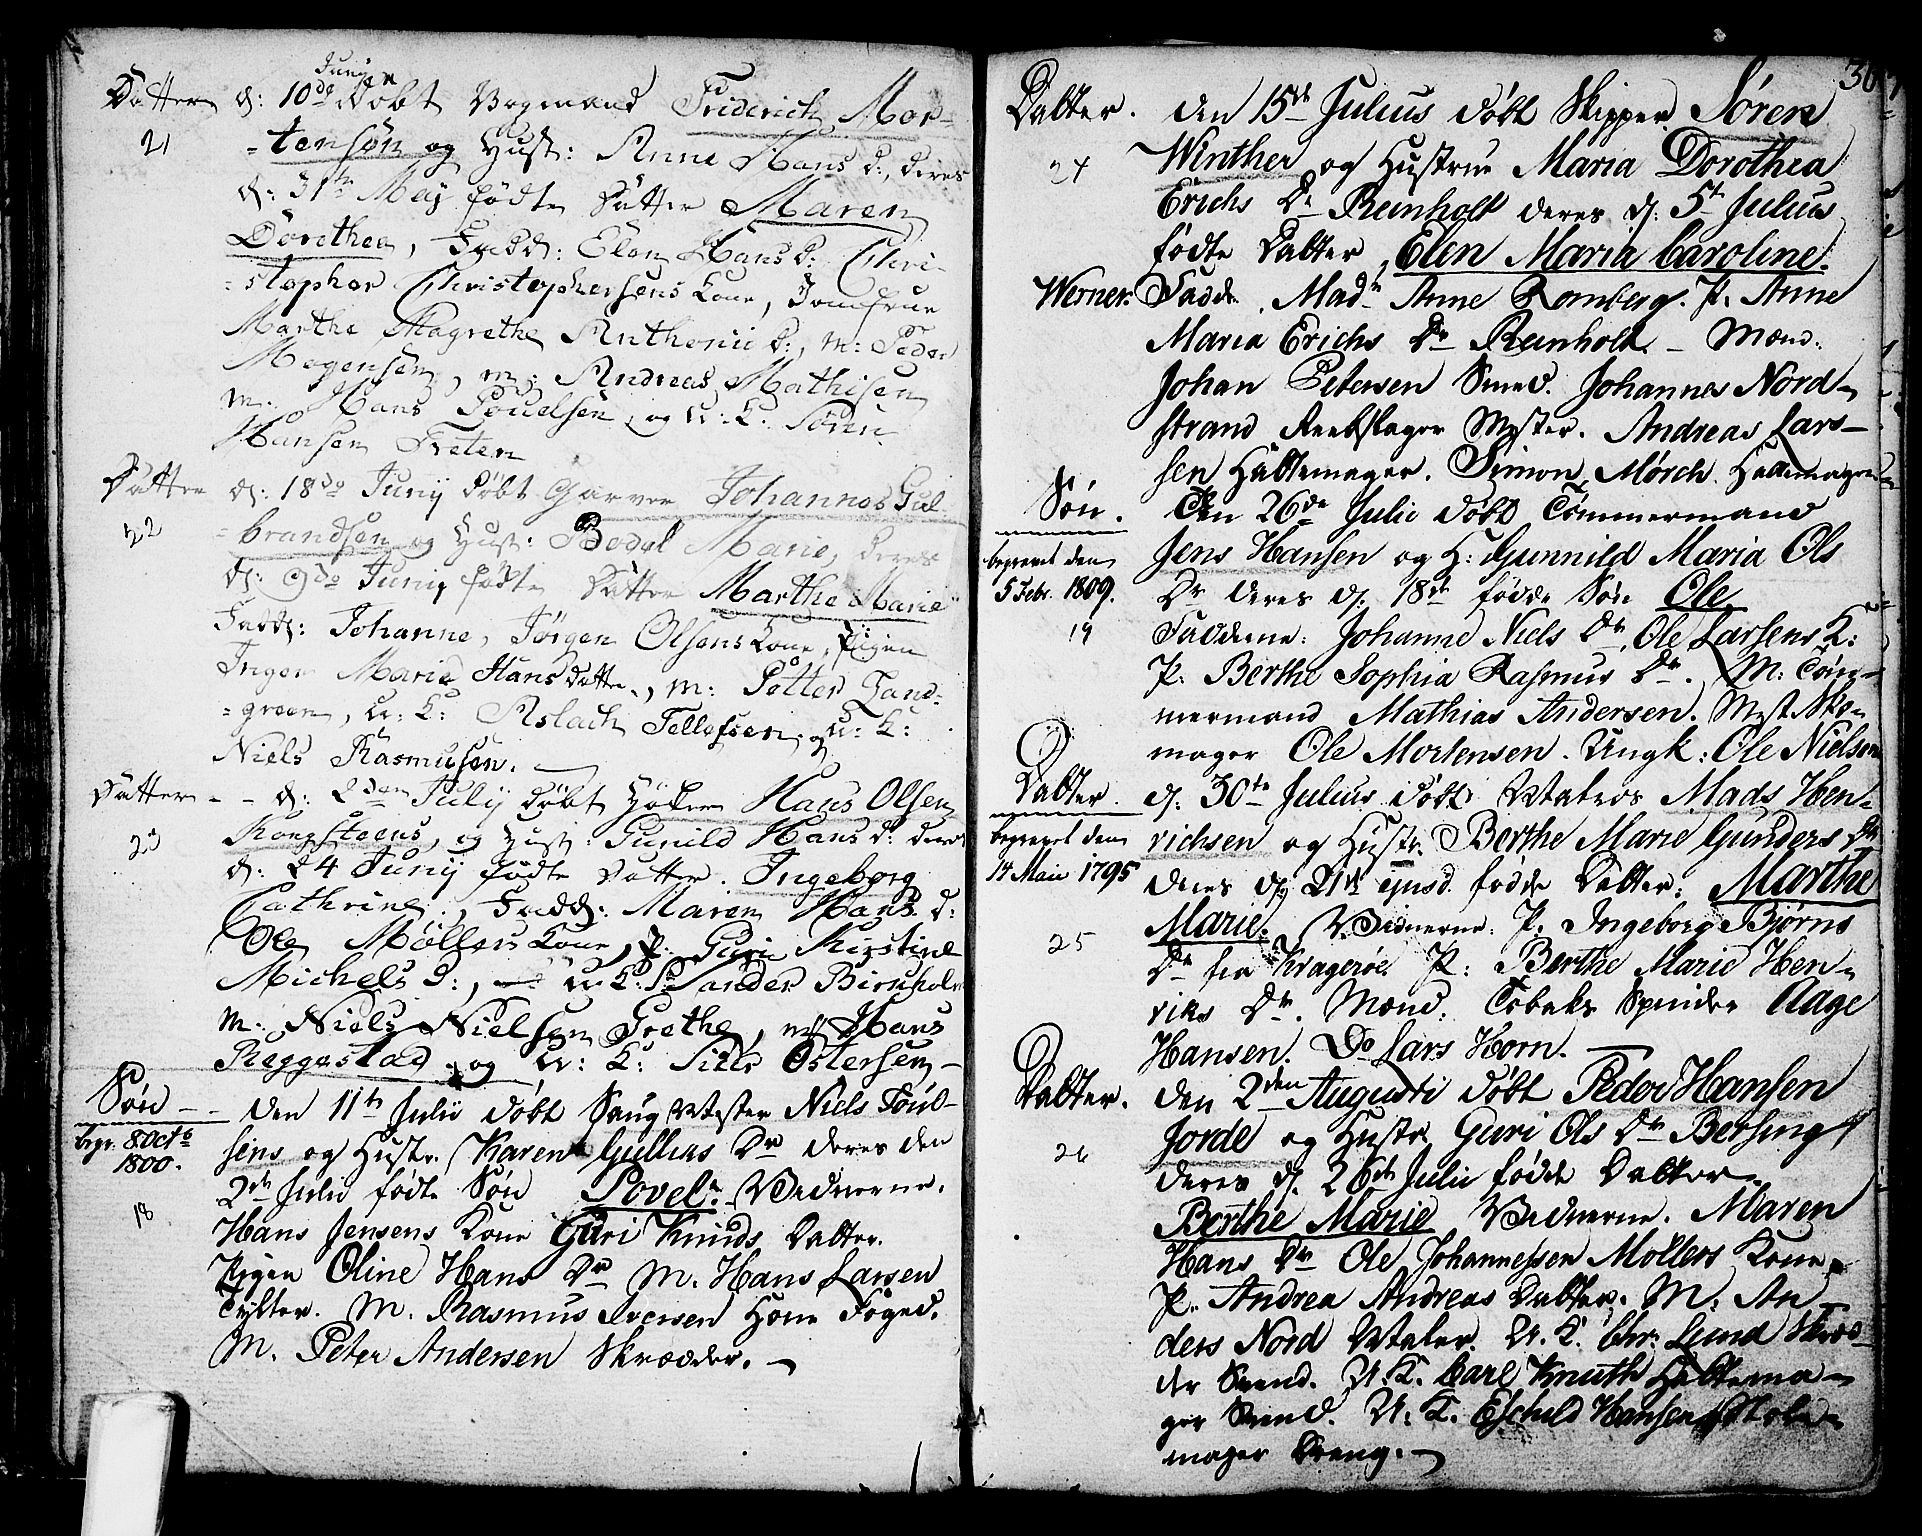 Datter d: 10de Junij Døbt Vogmand Friderich Mor-
21 -tensøn og Hust: Anne Hans D:, deres
d: 31te Maij fødte Datter Maren
Dorethea, Fadd: Elen Hans D: Chri-
-stopher Christophersens Kone, Jomfrue
Marthe Magrethe Anthonii D:, m: Peder
Mogensen, m: Andreas Mathisen
m: Hans Pouelsen, og U: K: Søren
Hansen Freten
Datter d: 18de Junij Døbt Garver Johannes Gul-
22 -brandsen og Hust: Bodel Marie, deres
d: 9de Junij fødte Datter Marthe Marie
Fadd: Johanne, Jørgen Olsens Kone, Pigen
Inger Marie Hans Datter, m: Petter Land-
-green, U: K: Aslach Tellefsen og U: K:
Niels Rasmusen.
Datter d: 2den Julij Døbt Høker Hans Olsen
23 Kongsteens, og Hust: Gunild Hans D: deres
d: 24 Junij fødte Datter Ingeborg
Cathrine, Fadd: Maren Hans D:
Ole Møllers Kone, P: Guri Kirstine
Michels D:, U: K: Sander Birnholm
m: Niels Nielsen Grethe, m: Hans
Reggestad og U: K: Sille Ostersen
Søn Den 11te Julii Døbt Saug Mester Niels Poul-
begr. 8 Octb 1800. sens og Hustr. Karen Gullics Dr deres den
2de Julii fødte Søn Povel. Vidnerne.
18 Hans Jensens Kone Guri Knuds Datter.
Pigen Oline Hans Dr M. Hans Larsen
M. Rasmus Iversen Foged.
M. Peter Andersen Skrædder.
30
Datter. Den 15de Julius Døbt Skipper Søren
24 Winther og Hustrue Maria Dorothea
Erichs Dr Reinholt deres d: 5te Julius
fødte Datter Elen Maria Caroline.
Werner. Fadd. Mad. Anne Romberg. P. Anne
Maria Erichs Dr Reinholt. Mænd.
Johan Petersen Smed. Johannes Nord-
strand Reebslager Mester. Andreas Lars-
sen Hattemager. Simon Mørch. Hattemager
Søn. Den 26de Julii Døbt Tømmermand
begravet den Jens Hansen og H: Gunnild Maria Ols
5 Febr. 1809. Dr deres d. 18de fødde Søn Ole
19 Fadderne: Johanne Niels Dr, Ole Larsens K:
P. Berthe Sophia Rasmus Dr. M. Tøm-
mermand Mathias Andersen. Mest. Sko-
mager Ole Mortensen. Ungk: Ole Nielsen
Datter. d. 30te Julius Døbt Matros Mads Hen-
begravet den richsen og Hustr. Berthe Marie Gunders Dr
14 Maii 1795 deres d. 21de ejusd. fødde Datter: Marthe
25 Marie. Vidnerne: P. Ingeborg Bjørns
Dr fra Kragerøe P: Berthe Marie Hen-
riks Dr. Mænd. Tobaks Spinder Aage
Hansen. Do Lars Horn.
Datter. Den 2den Augusti Døbt Peder Hansen
26 Jorde og Hustr. Guri Ols Dr Bersing
deres d. 26de Julii fødde Datter
Berthe Marie Vidnerne. Maren
Hans Dr Ole Johannessen Møllers Kone
P. Andrea Andreas Datter. M. An-
ders Nord Maler. U. K. Chr: Lund Skræd-
der Svend. U. K. Carl Knuth Hattema-
ger Svend. U. K. Eschild Hansen
mager Dreng.